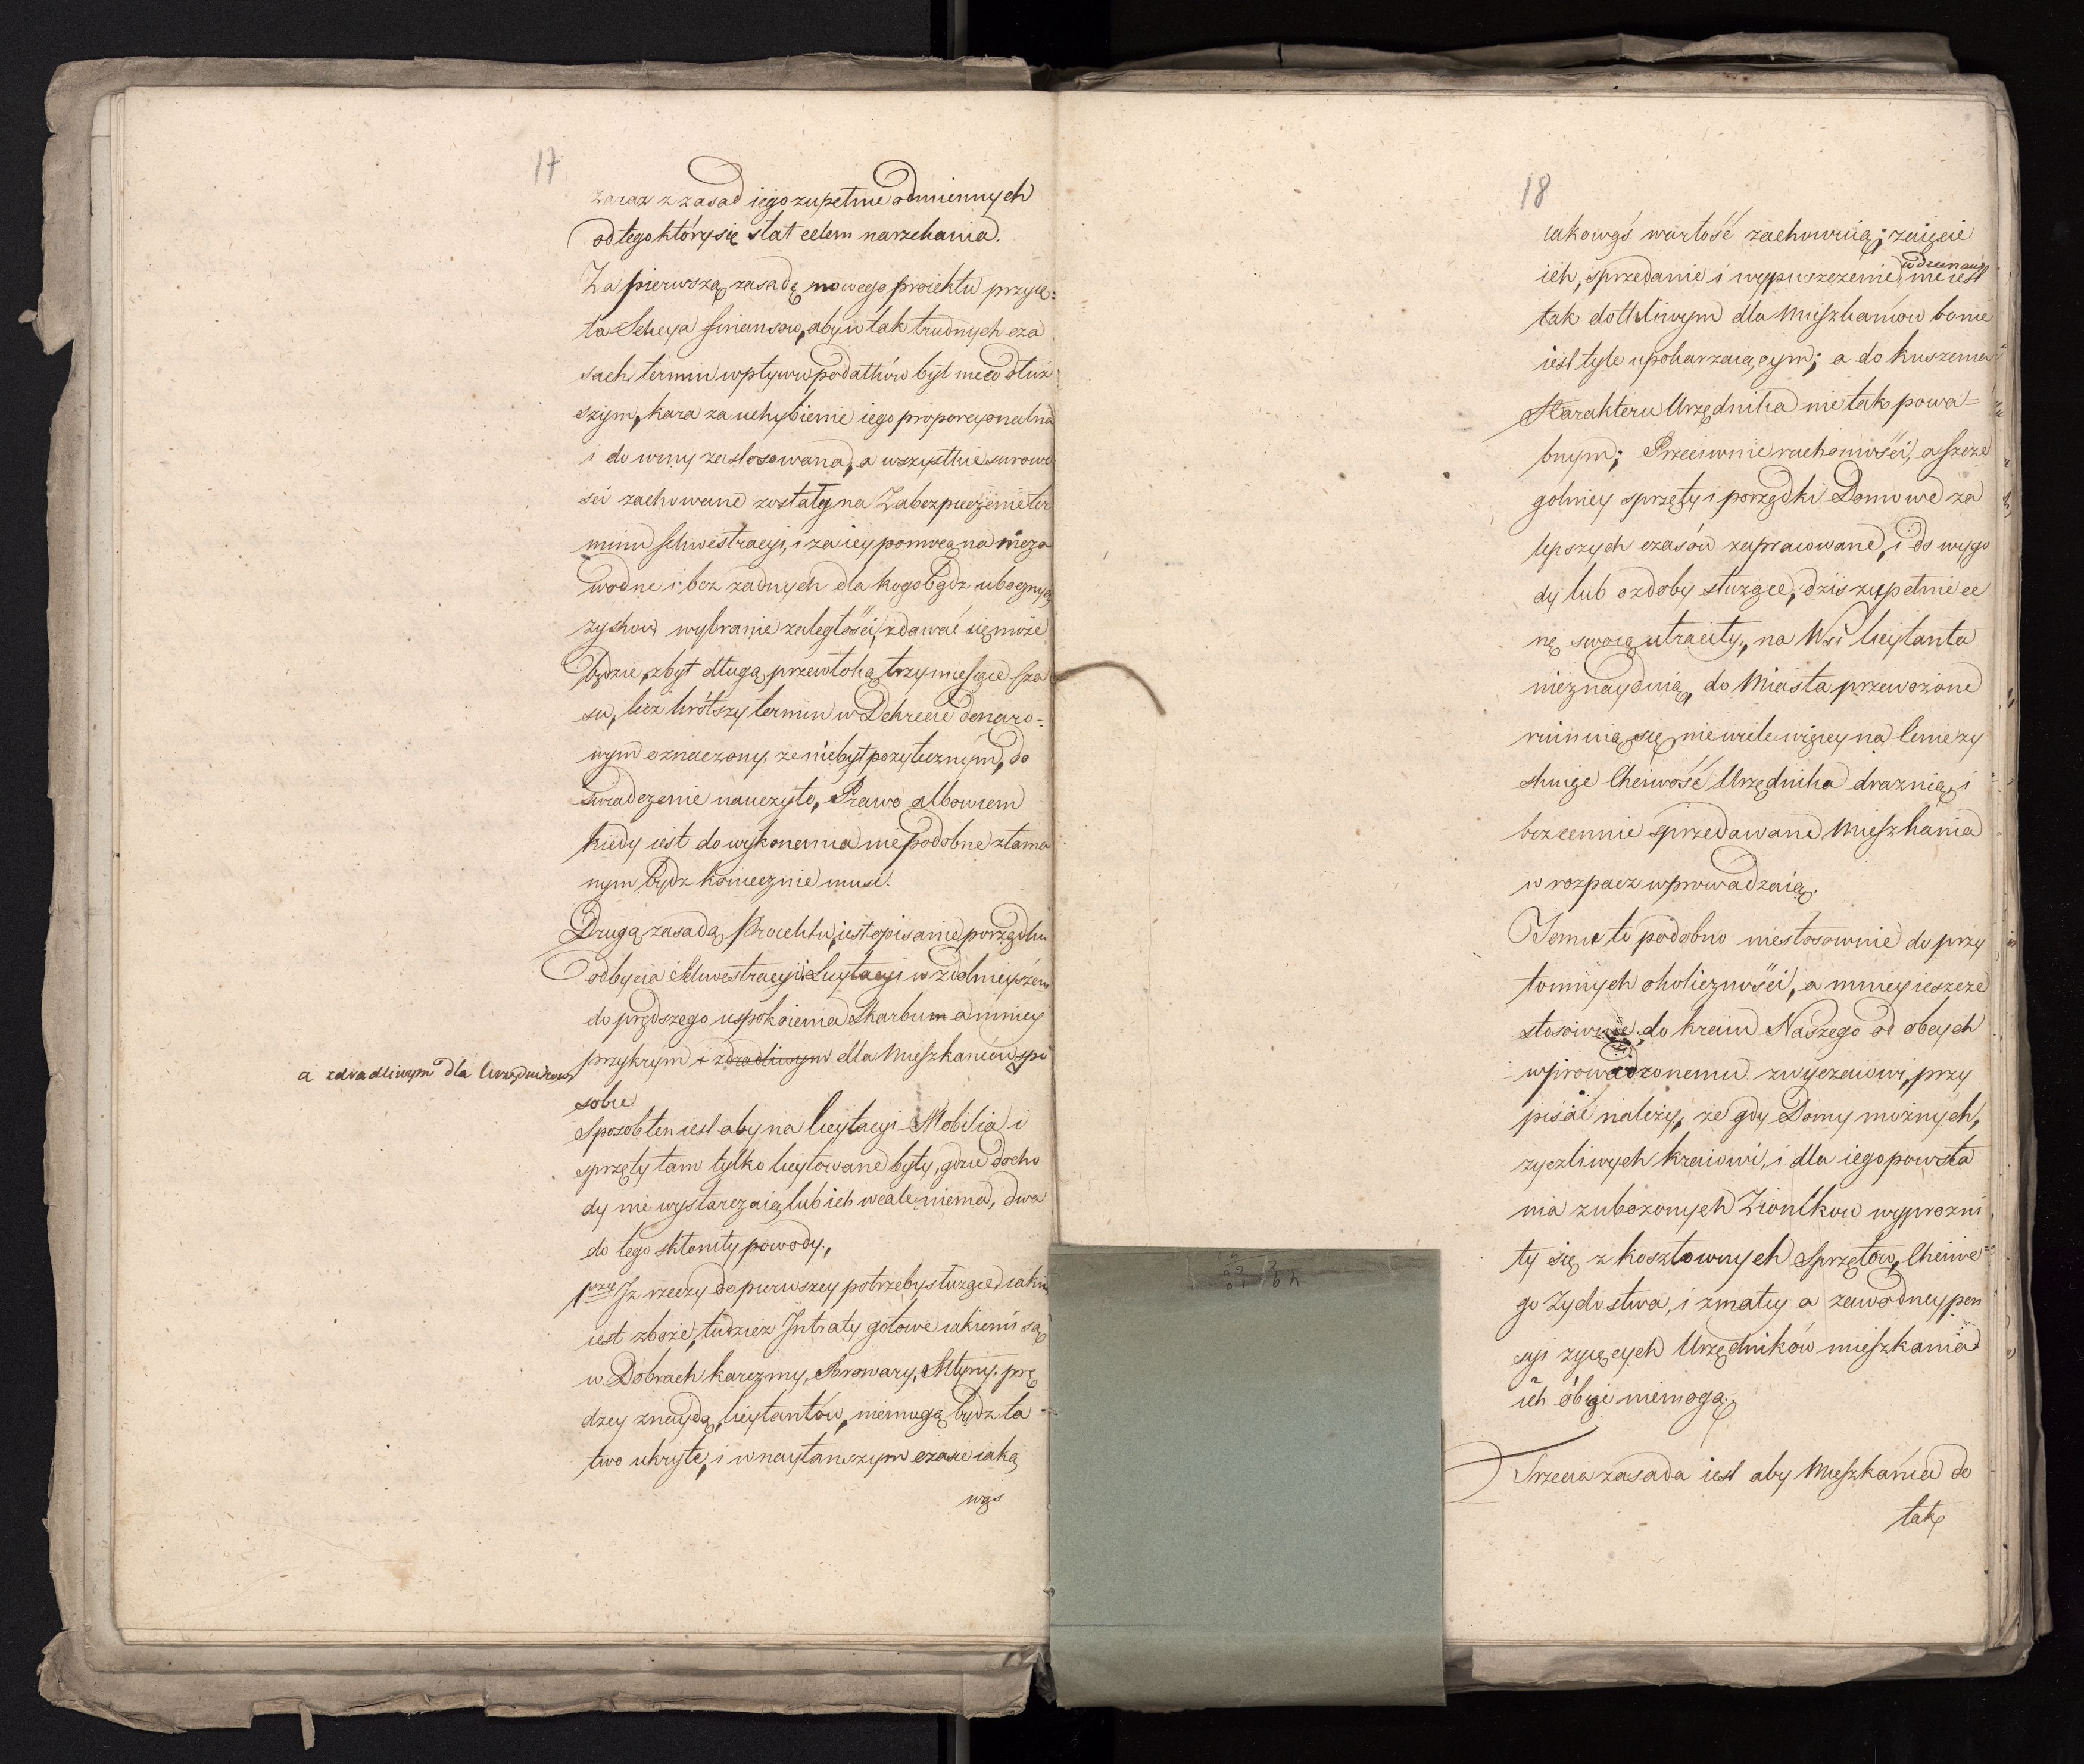 17
zaraz z zasad iego zupełnie odmiennych
od tego który się stał celem narzekania.
Za pierwszą zasadę nowego proiektu przyię=
ta Sekcya finansow, aby w tak trudnych cza
sach termin wpływu podatków był nieco dłuż
szym, kara za uchybienie iego proporcyonalna
i do winy zastosowana, a wszystkie surowo
sci zachowane zostały na Zabezpieczenie ter
minu sekwestracyi, i za iey pomocą na nieza
wodne i bez żadnych dla kogobądz ubocznych
zyskow wybranie zaległości, zdawać się może
będzie, zbyt długą przewłoką trzy miesiące cza
su, lecz krótszy termin w Dekrecie
wym oznaczony, że niebył pozytecznym, do
świadczenie nauczyło, Prawo albowiem
kiedy iest do wykonania niepodobne złama
nym bydz koniecznie musi.
Drugą zasadą Proiektu, iest opisanie porządku
odbycia Sekwestracyi i Licytacyi w zdolnieyszem
do prędszego uspokoienia Skarbu a mniey
przykrym i zdradliwym dla Mieszkanców spo
a zdradliwym dla Urzędnikow
sobie
Sposob ten iest aby na licytacyi Mobilia i
sprzęty tam tylko licytowane były, gdzie docho
dy nie wystarczaią, lub ich wcale niema, dwa
do tego skłoniły powody.,
1wsze Iż rzeczy do pierwszey potrzeby służące iakim
iest zboże, tudzież Intraty gotowe iakiemi są
w Dobrach karczmy, Browary, Młyny, prę
dzey znaydą licytantów, niemogą bydz ła
two ukryte, i w naytańszym czasie iaką
wąs
18
iakowąś wartość zachowuią; zaięcie
ich, sprzedanie i wypuszczenie nie iest
tak dotkliwym dla Mieszkańców bo nie
iest tyle upokarzaiącym; a do kuszenia
Harakteru Urzędnika nie tak powa=
bnym; Przeciwnie ruchomości, a szcze
golniey sprzęty i porządki Domowe za
lepszych czasów zapracowane, i do wygo
dy lub ozdoby służące, dziś zupełnie ce
nę swoią utraciły, na Wsi licytanta
nieznayduią, do Miasta przewożone
ruinuią się, niewiele więcey na lenie zy
skuiąc Chciwość Urzędnika drażnią, i
bezcennie sprzedawane Mieszkańca
w rozpacz wprowadzaią.
Temu to podobno niestosownie do przy
tomnych okoliczności, a mniey ieszcze
stosownie do kraiu Naszego od obcych
wprowadzonemu zwyczaiowi, przy
pisać należy, że gdy Domy możnych,
zyczliwych kraiowi, i dla iego powsta
nia zubożonych Ziomkow wyprozni
ły się z kosztownych Sprzętow, Chciwe=
go Żydostwa, i z małey a zawodney pen
syi żyiących Urzędników mieszkania
ich obiąć niemogą.
Trzecia zasada iest aby Mieszkańca do
tak